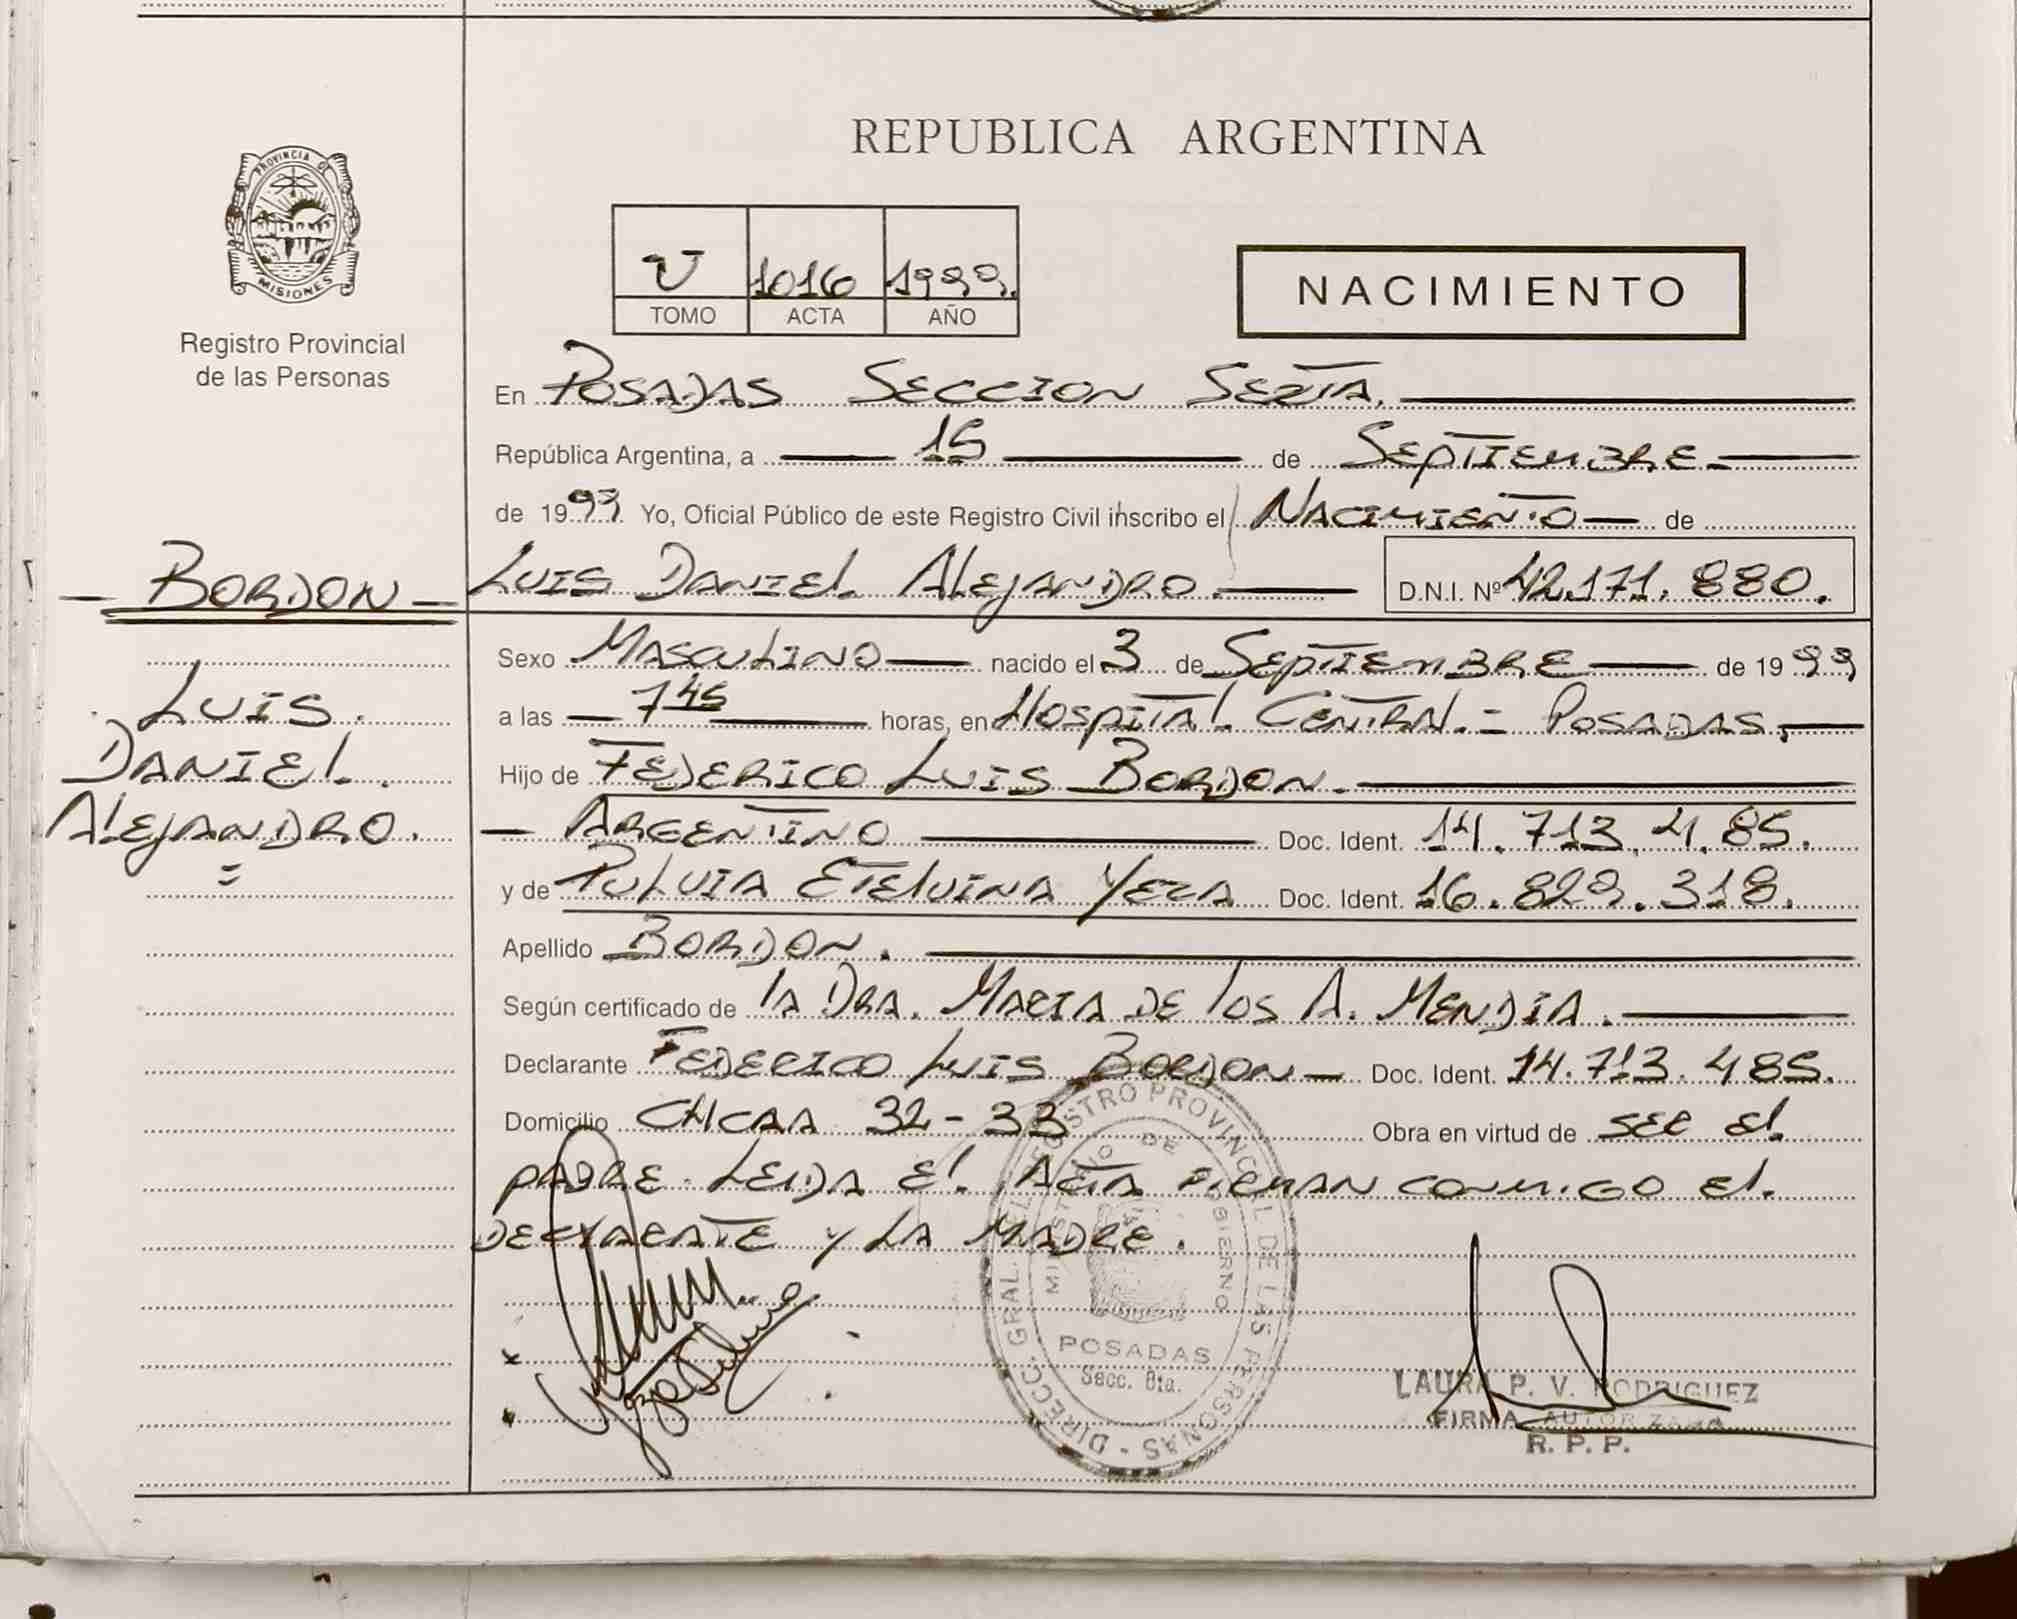 REPUBLICA ARGENTINA
PROVINCIA DE
MISIONES
Registro Provincial
de las Personas
U 1016 1999.
TOMO ACTA AÑO
NACIMIENTO
En POSADAS SECCION SEXTA.
República Argentina, a 15 de SEPTIEMBRE
de 1999 Yo, Oficial Público de este Registro Civil inscribo el NACIMIENTO de
BORDON LUIS DANIEL ALEJANDRO. D.N.I. Nº 42.171.880.
LUIS
DANIEL
ALEJANDRO.
Sexo MASCULINO nacido el 3 de SEPTIEMBRE de 1999
a las 7 45 horas, en HOSPITAL CENTRAL.= POSADAS,
Hijo de FEDERICO LUIS BORDON.
ARGENTINO Doc. Ident. 14.713.485.
y de ETELVINA Doc. Ident. 16.829.318.
Apellido BORDON.
Según certificado de la DRA. MARIA DE LOS A. MENDIA.
Declarante FEDERICO LUIS BORDON Doc. Ident. 14.713.485.
Domicilio 32-33 Obra en virtud de SER EL
PADRE. LEIDA EL ACTA FIRMAN CONMIGO EL
Y LA MADRE.
DIRECC. GRAL. DEL REGISTRO PROVINCIAL DE LAS PERSONAS
MINISTERIO DE GOBIERNO
POSADAS
Secc. 6ta.
LAURA P. V. RODRIGUEZ
FIRMA AUTORIZADA
R. P. P.